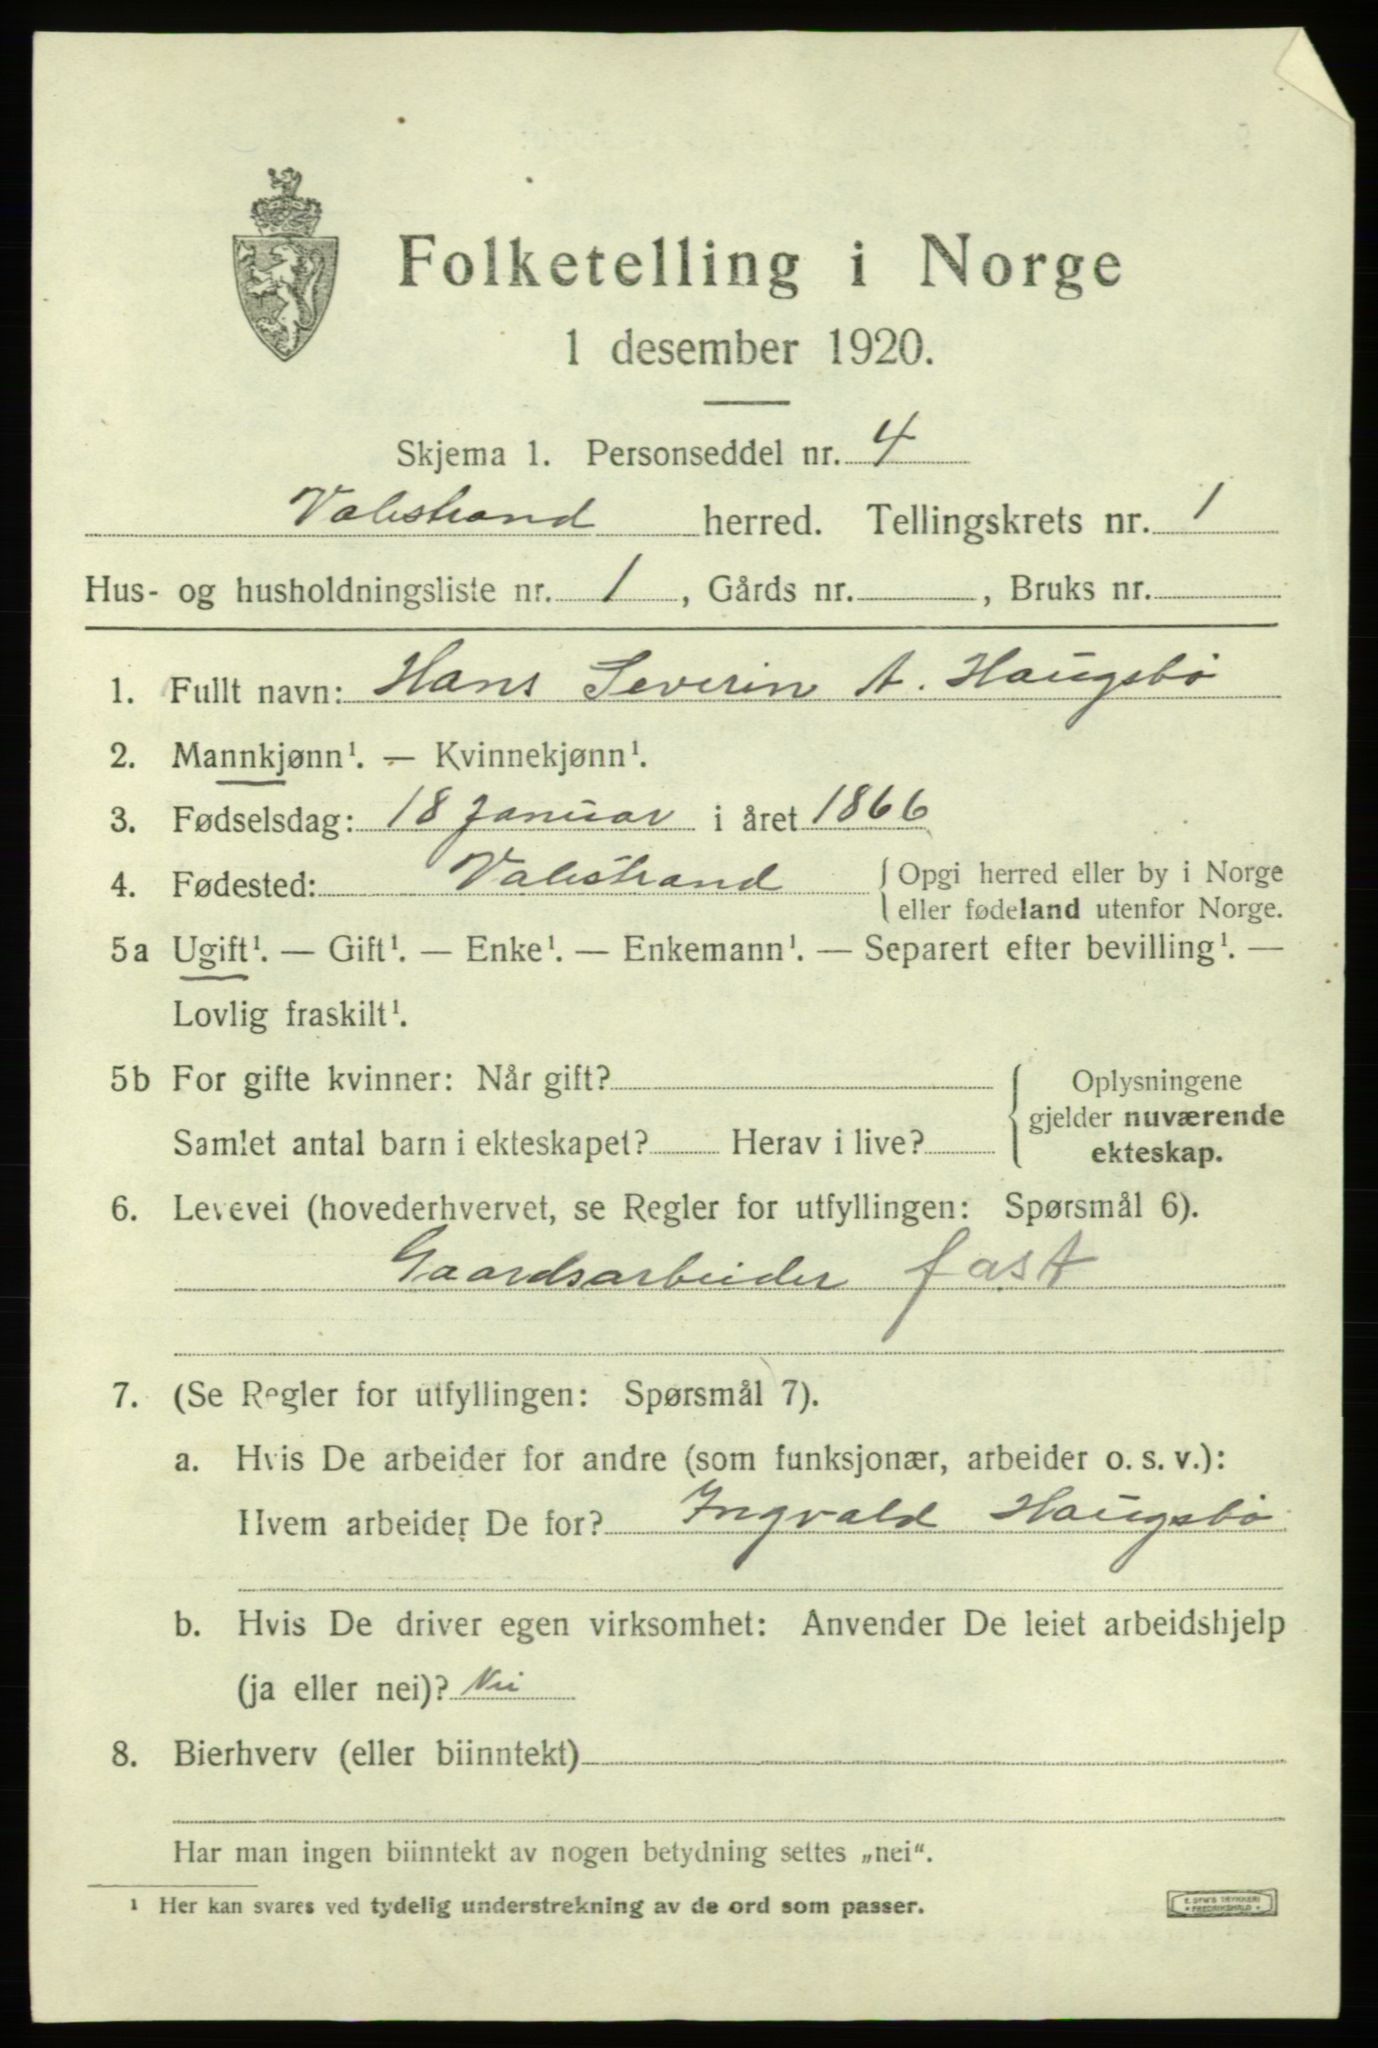 Folketelling i Norge
1 desember 1920.
Skjema 1. Personseddel nr. 4
Valestrand herred. Tellingskrets nr. 1
Hus- og husholdningsliste nr. 1, Gårds nr. , Bruks nr.
1. Fullt navn: Hans Severin A. Haugsbø
2. Mannkjønn¹. — Kvinnekjønn¹.
3. Fødselsdag: 18 Januar i året 1866
4. Fødested: Valestrand { Opgi herred eller by i Norge
eller fødeland utenfor Norge.
5a Ugift¹. — Gift¹. — Enke¹. — Enkemann¹. — Separert efter bevilling¹. —
Lovlig fraskilt¹.
5b For gifte kvinner: Når gift? { Oplysningene
gjelder nuværende
Samlet antal barn i ekteskapet? Herav i live?
ekteskap.
6. Levevei (hovederhvervet, se Regler for utfyllingen: Spørsmål 6).
Gaardsarbeider fast
7. (Se Regler for utfyllingen: Spørsmål 7).
a. Hvis De arbeider for andre (som funksjonær, arbeider o. s. v.):
Hvem arbeider De for? Ingvald Haugsbø
b. Hvis De driver egen virksomhet: Anvender De leiet arbeidshjelp
(ja eller nei)? Nei
8. Bierhverv (eller biinntekt)
Har man ingen biinntekt av nogen betydning settes „nei“.
¹ Her kan svares ved tydelig understrekning av de ord som passer.
E. SEM'S TRYKKERI
FREDRIKSHALD